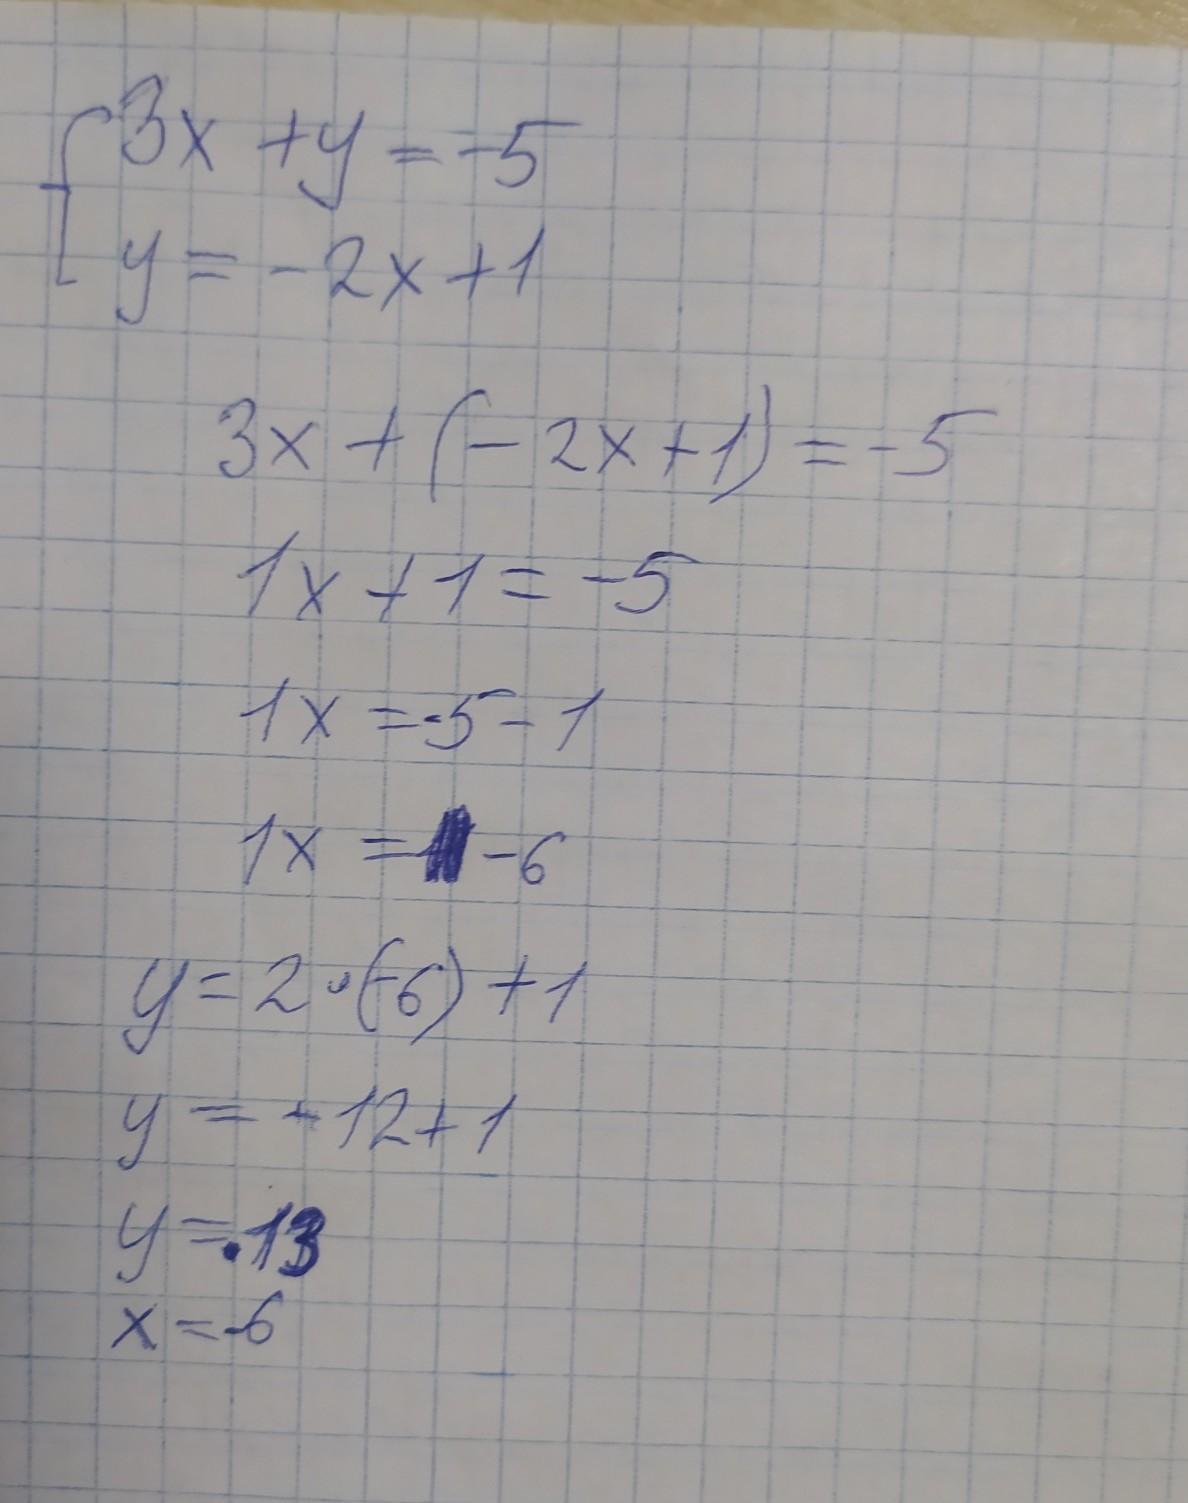 3x + y = -5
y = -2x + 1
3x + (-2x + 1) = -5
1x + 1 = -5
1x = -5 - 1
1x = -6
y = 2 · (-6) + 1
y = -12 + 1
y = 13
x = -6